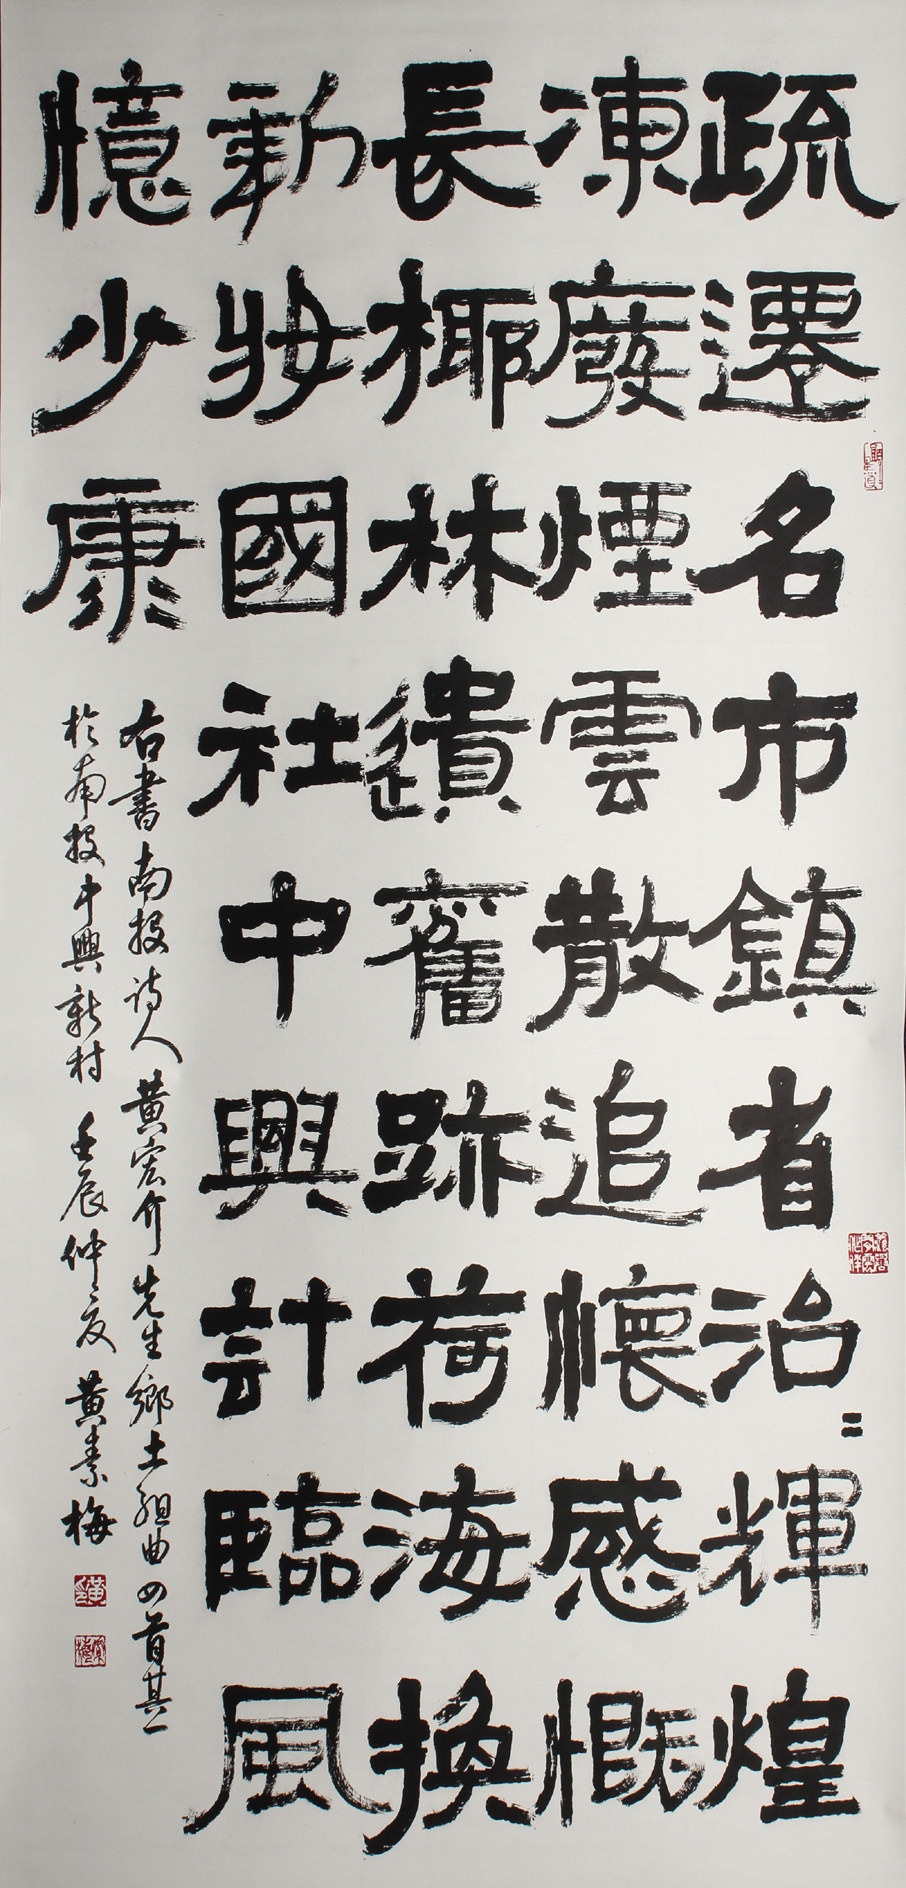 疏遷名市鎮省治〻輝煌
凍廢煙雲散追懷感慨
長椰林遺舊跡荷海換
新妝國社中興計臨風
憶少康
右書南投詩人黃宏介先生鄉土組曲四首其一
於南投中興新村 壬辰仲夏 黃素梅